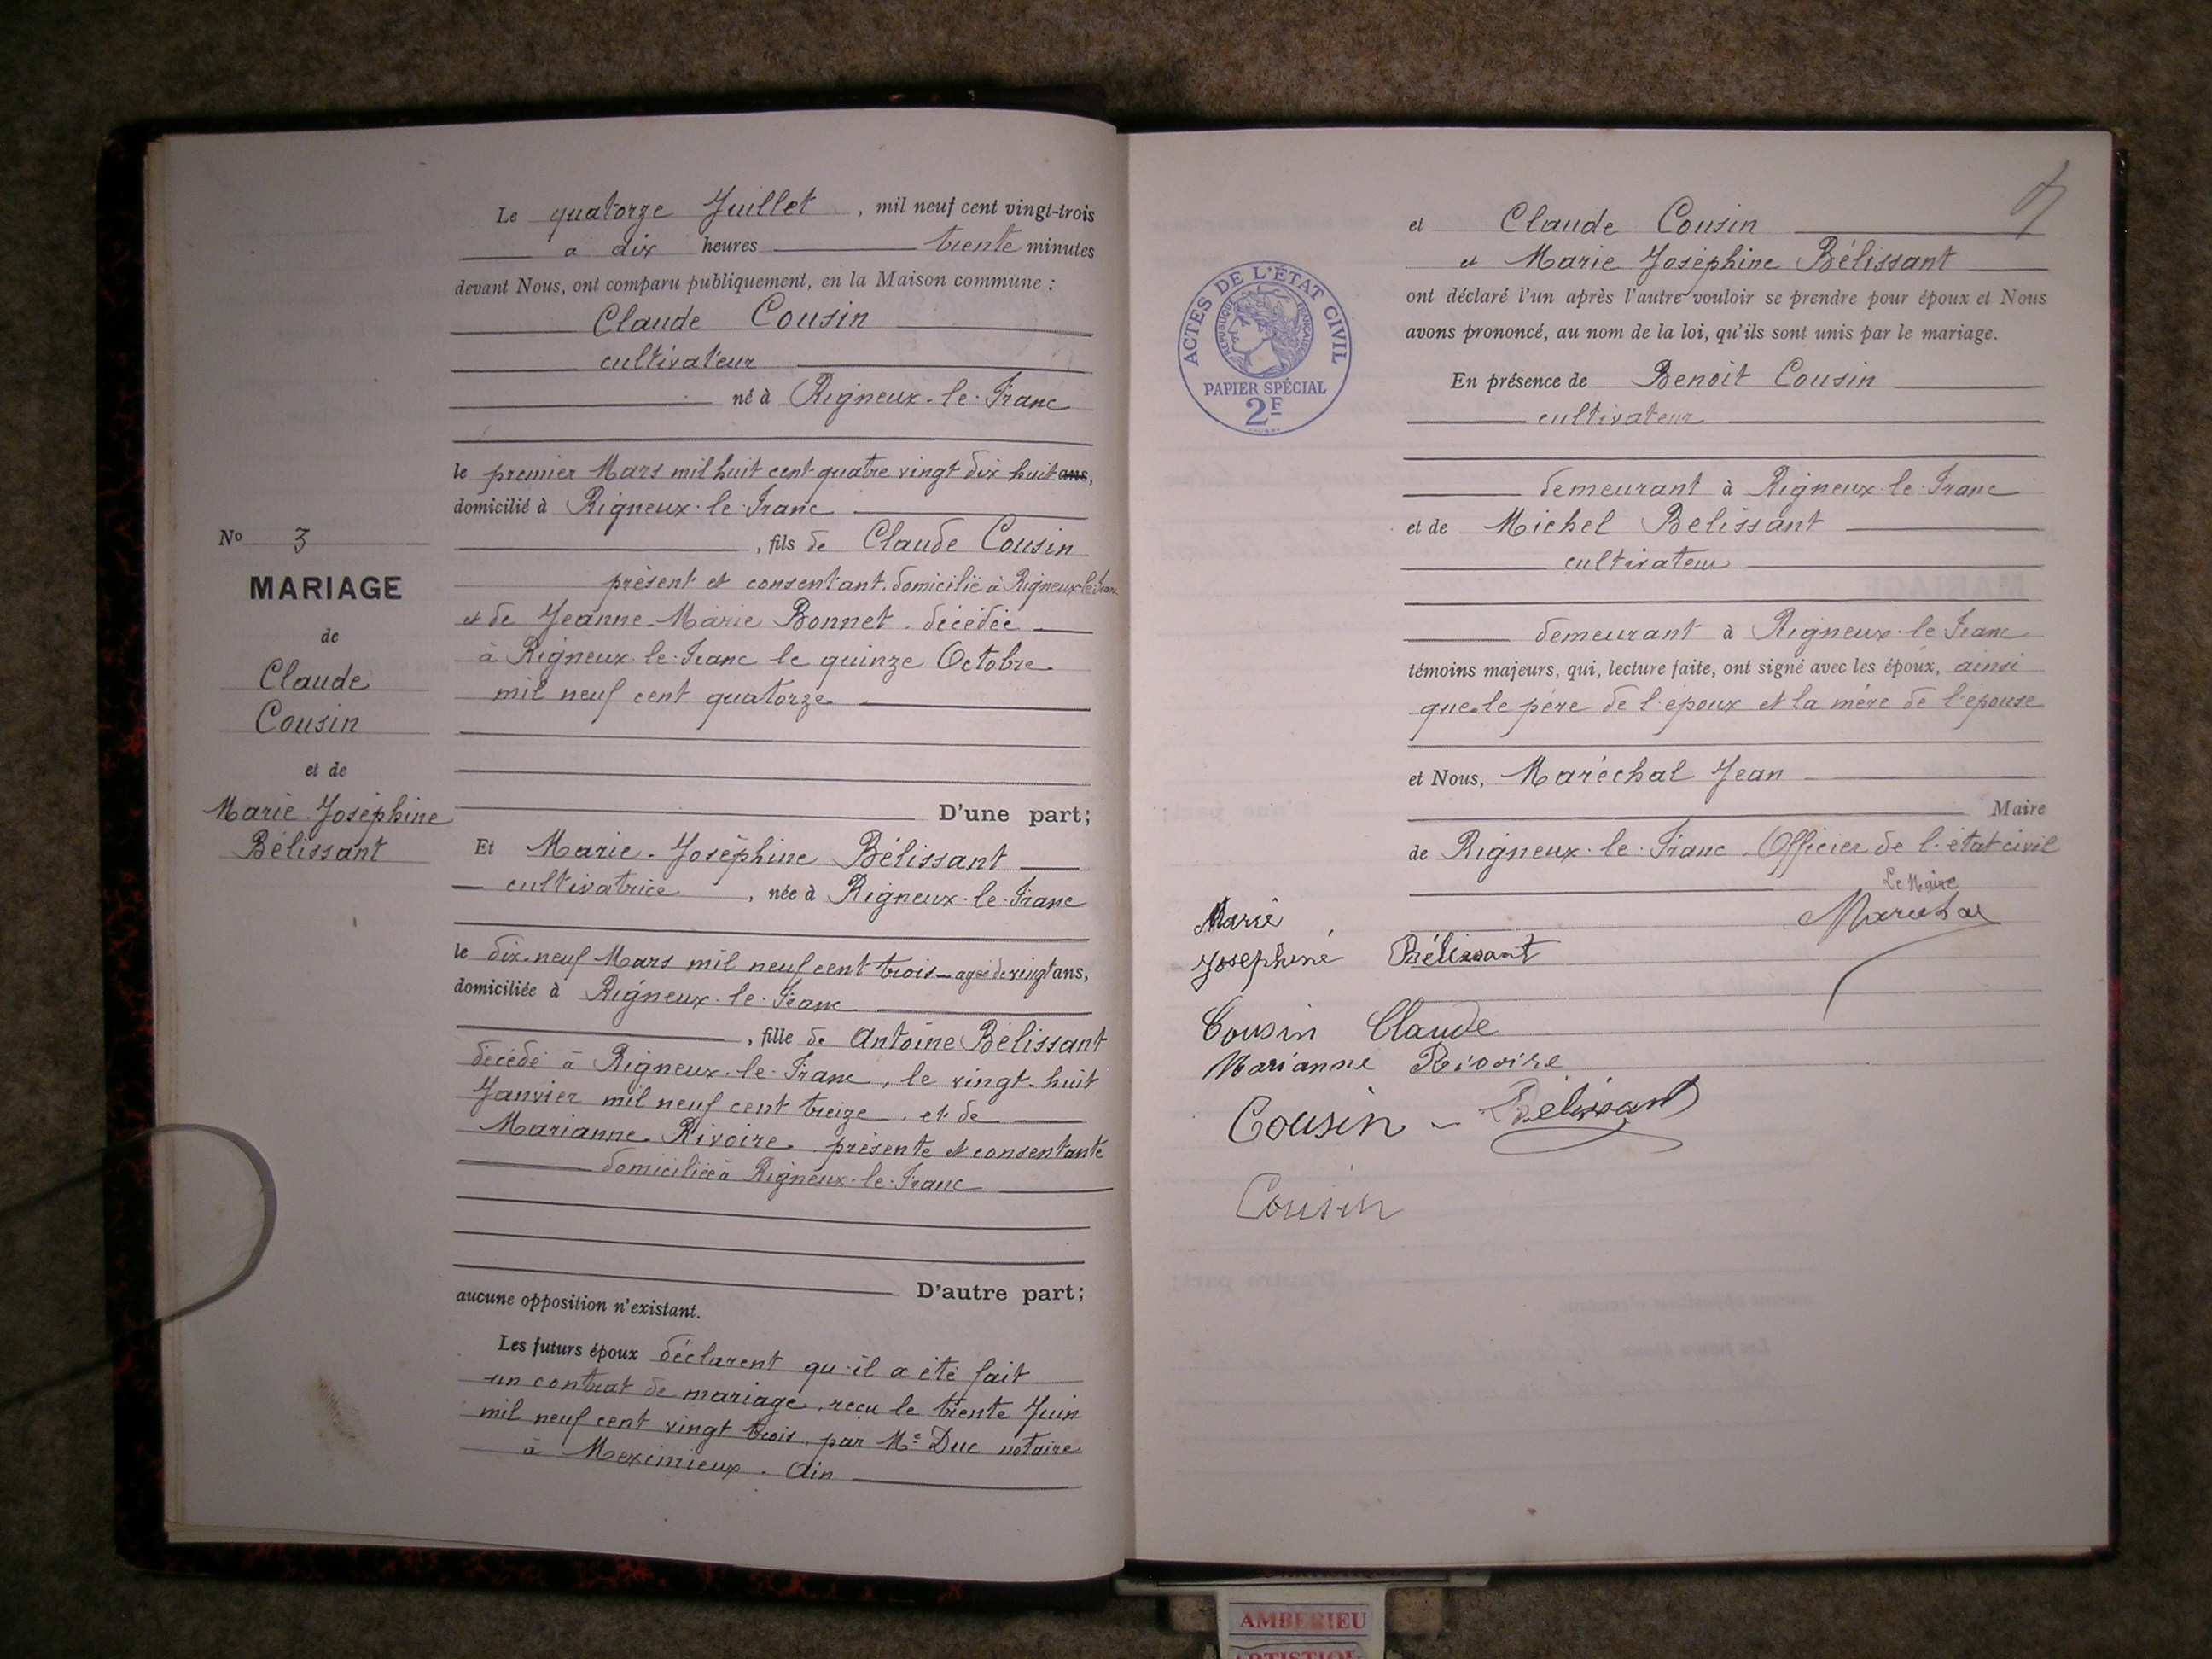 Le quatorze Juillet, mil neuf cent vingt-trois
a dix heures trente minutes
devant Nous, ont comparu publiquement, en la Maison commune :
Claude Cousin
cultivateur
né à Rigneux-le-Franc
le premier Mars mil huit cent quatre vingt dix huit ans,
domicilié à Rigneux-le-Franc
, fils de Claude Cousin
présent et consentant. domicilié à Rigneux-le-Franc
et de Jeanne-Marie Bonnet. décédée
à Rigneux-le-Franc le quinze Octobre
mil neuf cent quatorze
D'une part;
Et Marie-Joséphine Bélissant
cultivatrice, née à Rigneux-le-Franc
le dix-neuf Mars mil neuf cent trois - agée de vingt ans,
domiciliée à Rigneux-le-Franc
, fille de Antoine Bélissant
décédé à Rigneux-le-Franc, le vingt-huit
Janvier mil neuf cent treize, et de
Marianne Rivoire présente et consentante
domiciliée à Rigneux-le-Franc
D'autre part;
aucune opposition n'existant.
Les futurs époux déclarent qu'il a été fait
un contrat de mariage, reçu le trente Juin
mil neuf cent vingt trois, par Me Duc notaire
à Meximieux. Ain
No 3
MARIAGE
de
Claude
Cousin
et de
Marie-Joséphine
Bélissant
et Claude Cousin
et Marie Joséphine Bélissant
ont déclaré l'un après l'autre vouloir se prendre pour époux et Nous
avons prononcé, au nom de la loi, qu'ils sont unis par le mariage.
En présence de Benoit Cousin
cultivateur
demeurant à Rigneux-le-Franc
et de Michel Belissant
cultivateur
demeurant à Rigneux-le-Franc
témoins majeurs, qui, lecture faite, ont signé avec les époux, ainsi
que le père de l'époux et la mère de l'épouse
et Nous, Maréchal Jean
Maire
de Rigneux-le-Franc. Officier de l'état civil
Le Maire
Marechal
Marie
Josephine Bélissant
Cousin Claude
Marianne Rivoire
Cousin - Bélissant
Cousin
ACTES DE L'ÉTAT CIVIL
RÉPUBLIQUE FRANÇAISE
PAPIER SPÉCIAL
2F
AMBERIEU
ARTISTIQUE